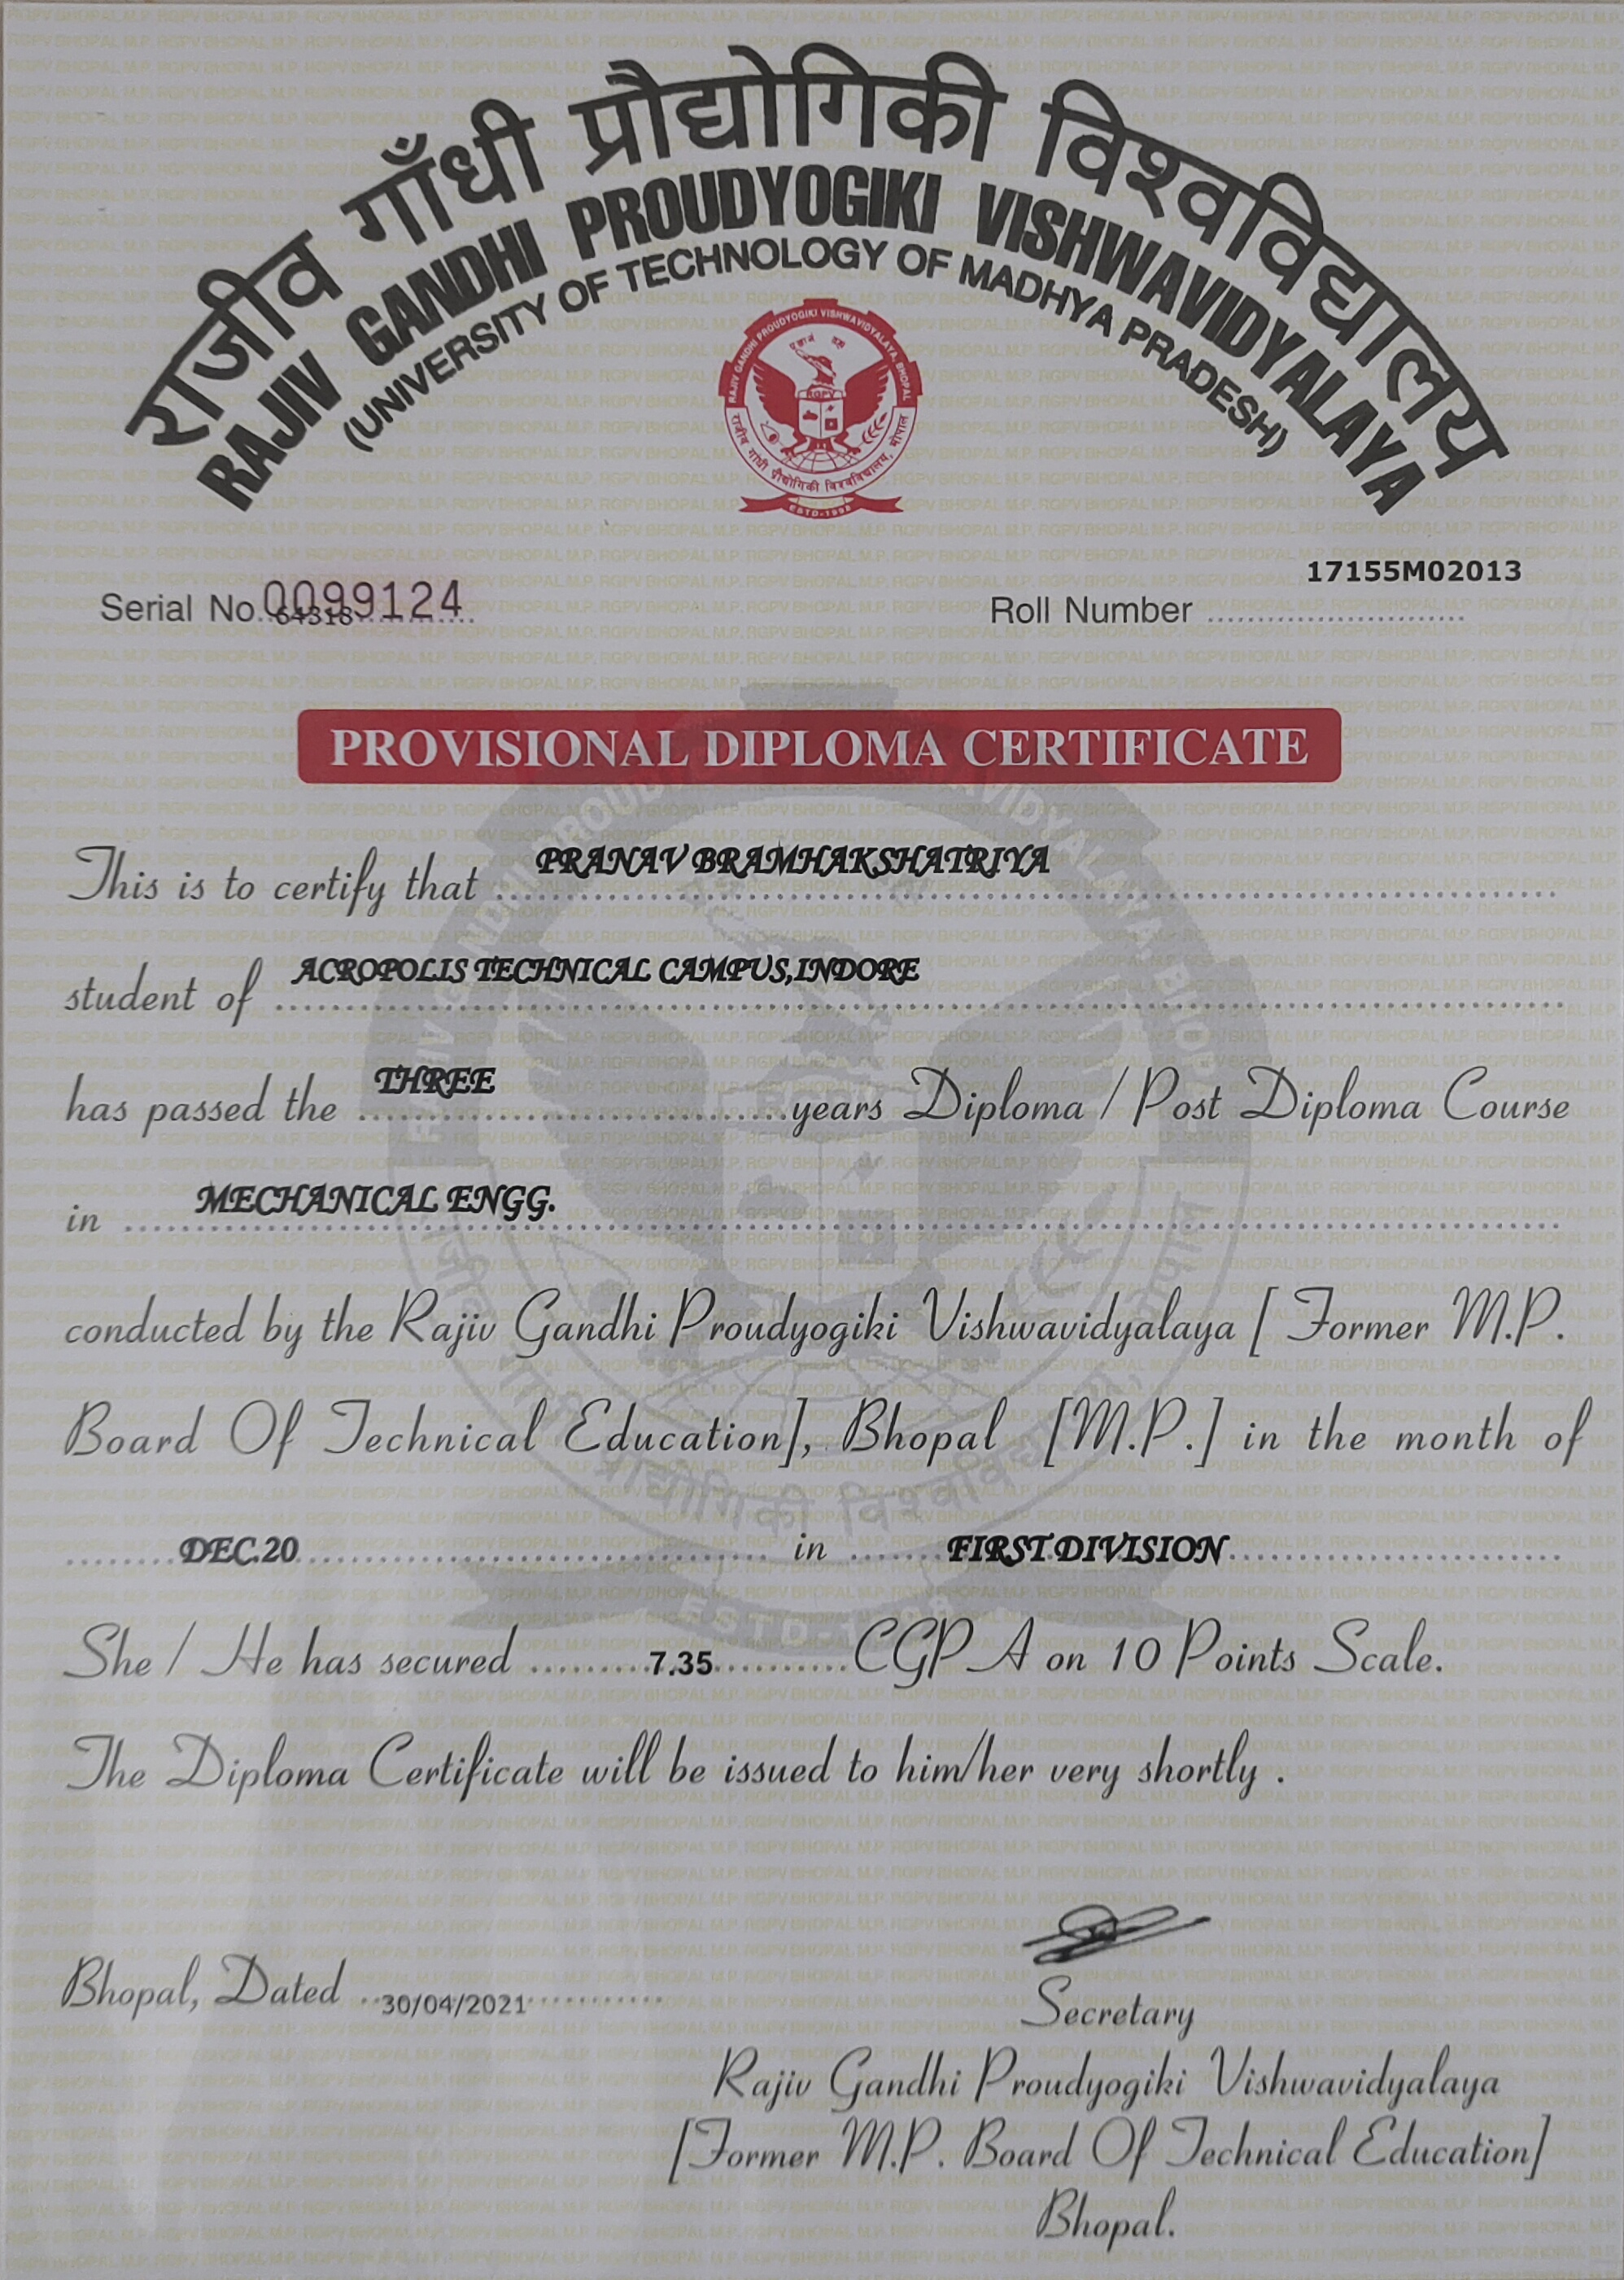 राजीव गाँधी प्रौद्योगिकी विश्वविद्यालय
RAJIV GANDHI PROUDYOGIKI VISHWAVIDYALAYA
(UNIVERSITY OF TECHNOLOGY OF MADHYA PRADESH)
RAJIV GANDHI PROUDYOGIKI VISHWAVIDYALAYA, BHOPAL
RGPV
राजीव गांधी प्रौद्योगिकी विश्वविद्यालय, भोपाल
ESTD-1998
17155M02013
Serial No. 0099124 Roll Number
64318
PROVISIONAL DIPLOMA CERTIFICATE
This is to certify that PRANAV BRAMHAKSHATRIYA
student of ACROPOLIS TECHNICAL CAMPUS,INDORE
has passed the THREE years Diploma / Post Diploma Course
in MECHANICAL ENGG.
conducted by the Rajiv Gandhi Proudyogiki Vishwavidyalaya [ Former M.P.
Board Of Technical Education], Bhopal [M.P.] in the month of
DEC.20 in FIRST DIVISION
She / He has secured 7.35 CGPA on 10 Points Scale.
The Diploma Certificate will be issued to him/her very shortly .
Bhopal, Dated 30/04/2021
Secretary
Rajiv Gandhi Proudyogiki Vishwavidyalaya
[Former M.P. Board Of Technical Education]
Bhopal.